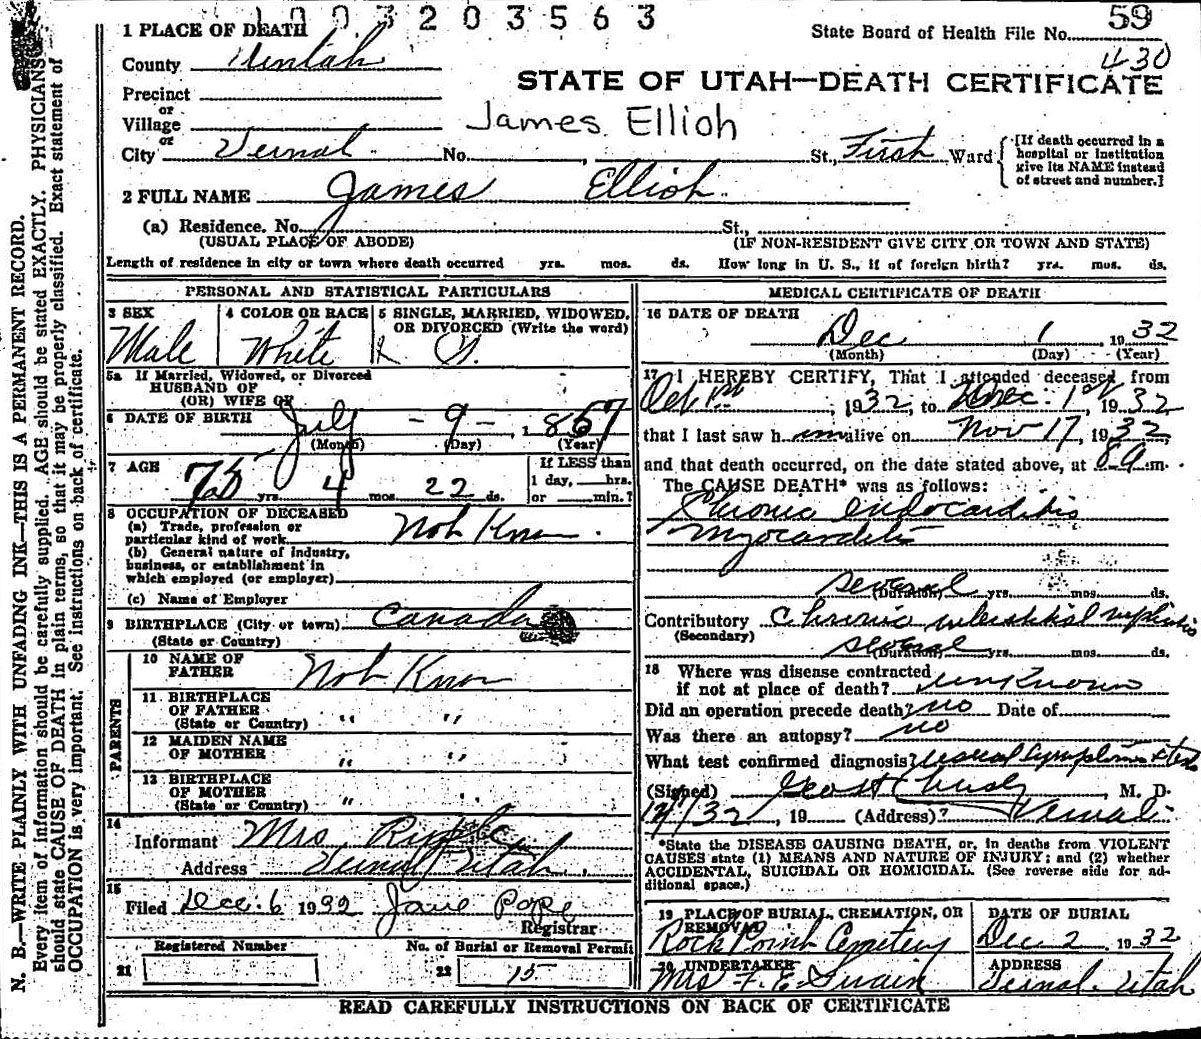 1003203563
59
1 PLACE OF DEATH
State Board of Health File No.
430
County Uintah
STATE OF UTAH—DEATH CERTIFICATE
Precinct
or
Village
James Ellioh
or
City Vernal No. , St., First Ward
[If death occurred in a
hospital or institution
give its NAME instead
of street and number.]
2 FULL NAME James Ellioh
(a) Residence. No. St.,
(USUAL PLACE OF ABODE) (IF NON-RESIDENT GIVE CITY OR TOWN AND STATE)
Length of residence in city or town where death occurred yrs. mos. ds. How long in U. S., if of foreign birth? yrs. mos. ds.
PERSONAL AND STATISTICAL PARTICULARS
3 SEX 4 COLOR OR RACE 5 SINGLE, MARRIED, WIDOWED,
OR DIVORCED (Write the word)
Male White
5a If Married, Widowed, or Divorced
HUSBAND OF
(OR) WIFE OF
6 DATE OF BIRTH July - 9 - , 1857
(Month) (Day) (Year)
7 AGE 75 yrs. 4 mos. 22 ds.
If LESS than
1 day, hrs.
or min.?
8 OCCUPATION OF DECEASED
(a) Trade, profession or
particular kind of work Noh Know.
(b) General nature of industry,
business, or establishment in
which employed (or employer)
(c) Name of Employer
9 BIRTHPLACE (City or town) Canada
(State or Country)
PARENTS
10 NAME OF
FATHER Noh Know
11 BIRTHPLACE
OF FATHER
(State or Country) " "
12 MAIDEN NAME
OF MOTHER " "
13 BIRTHPLACE
OF MOTHER
(State or Country) " "
14
Informant Mrs
Address Vernal Utah.
15
Filed Dec. 6 1932 Jane Pope
Registrar
Registered Number No. of Burial or Removal Permit
21 22 15
MEDICAL CERTIFICATE OF DEATH
16 DATE OF DEATH
Dec 1 , 1932
(Month) (Day) (Year)
17 I HEREBY CERTIFY, That I attended deceased from
1st , 1932, to Dec. 1st, 1932
that I last saw him alive on Nov 17, 1932,
and that death occurred, on the date stated above, at 8 a m.
The CAUSE DEATH* was as follows:
Chronic Endocarditis
Myocarditis
several
(Duration) yrs. mos. ds.
Contributory Chronic
(Secondary)
several
(Duration) yrs. mos. ds.
18 Where was disease contracted
if not at place of death? unknown
Did an operation precede death? no Date of
Was there an autopsy? no
What test confirmed diagnosis? usual symptoms
(Signed) , M. D.
, 19 (Address)? Vernal
*State the DISEASE CAUSING DEATH, or, in deaths from VIOLENT
CAUSES state (1) MEANS AND NATURE OF INJURY; and (2) whether
ACCIDENTAL, SUICIDAL OR HOMICIDAL. (See reverse side for ad-
ditional space.)
19 PLACE OF BURIAL, CREMATION, OR
REMOVAL
DATE OF BURIAL
Rock Point Cemetery Dec 2, 1932
20 UNDERTAKER ADDRESS
Mrs F. E. Swain Vernal. Utah
READ CAREFULLY INSTRUCTIONS ON BACK OF CERTIFICATE
N. B.—WRITE PLAINLY WITH UNFADING INK—THIS IS A PERMANENT RECORD.
Every item of information should be carefully supplied. AGE should be stated EXACTLY. PHYSICIANS
should state CAUSE OF DEATH in plain terms, so that it may be properly classified. Exact statement of
OCCUPATION is very important. See instructions on back of certificate.